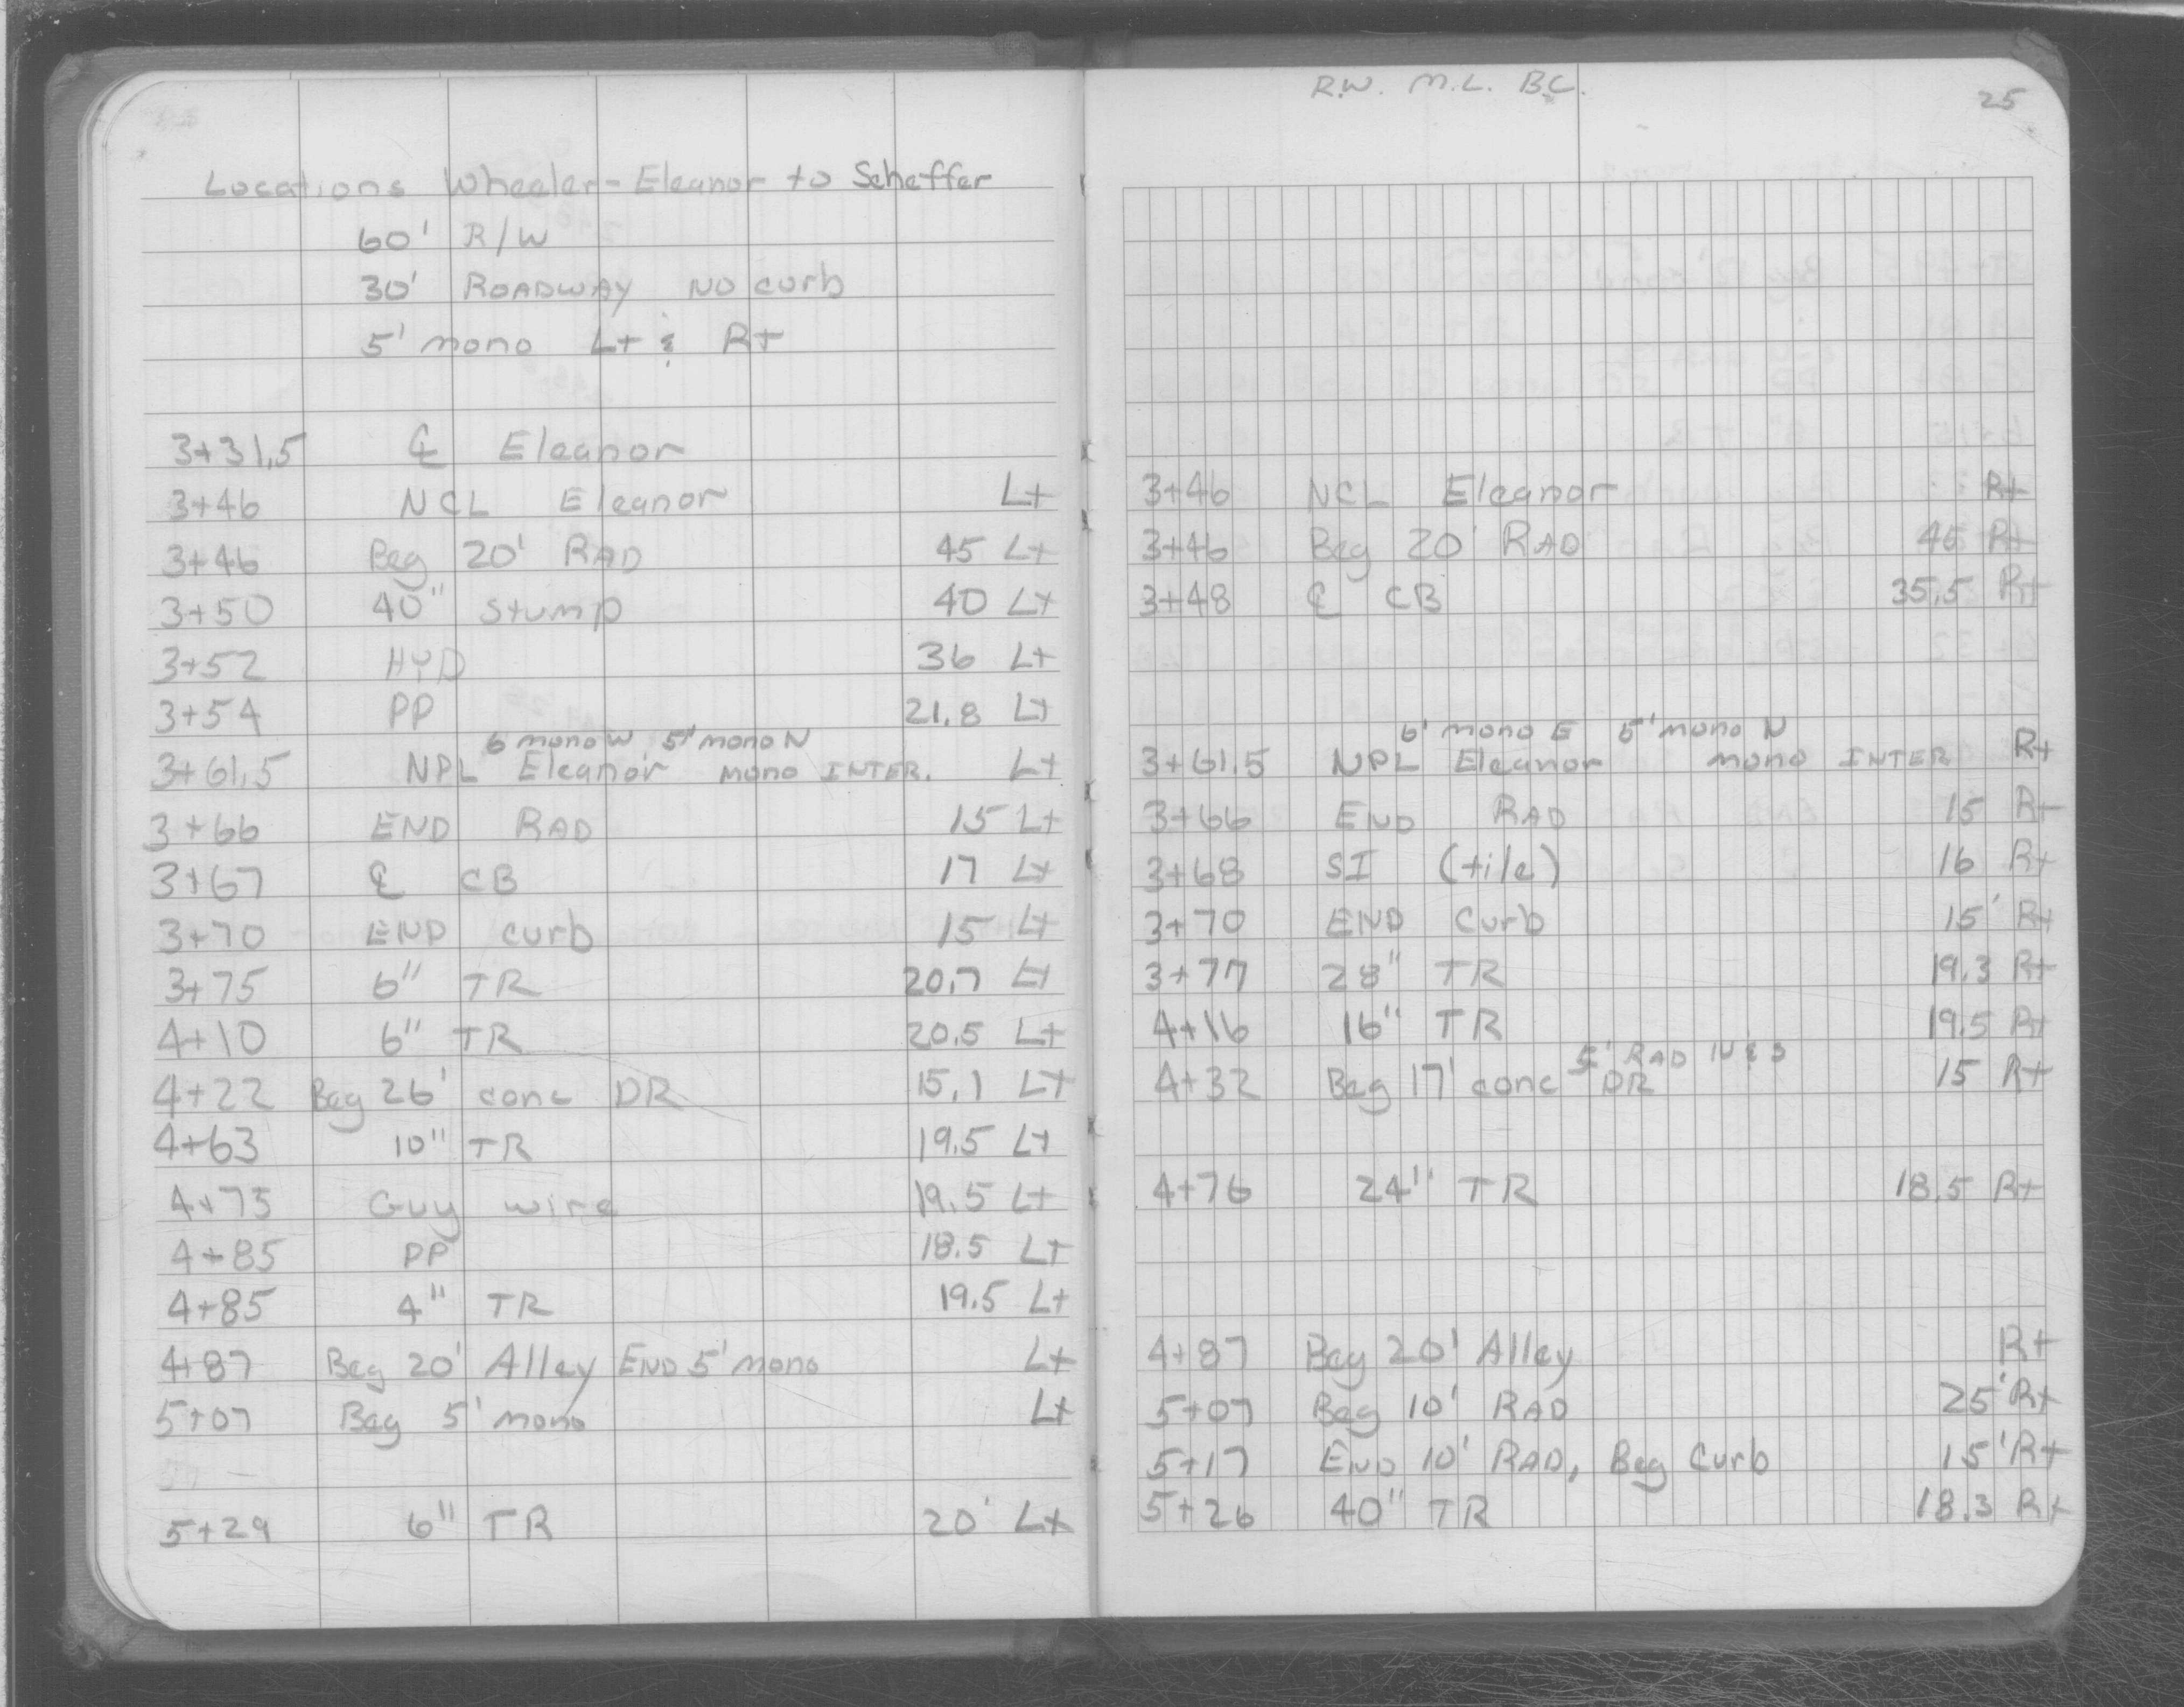 Locations Wheeler - Eleanor to Scheffer
60' R/W
30' ROADWAY NO curb
5' mono Lt & Rt
3+31.5 ℄ Eleanor
3+46 NCL Eleanor Lt
3+46 Beg 20' RAD 45 Lt
3+50 40" stump 40 Lt
3+52 HYD 36 Lt
3+54 PP 21.8 Lt
6 mono W 5' mono N
3+61.5 NPL Eleanor mono INTER. Lt
3+66 END RAD 15 Lt
3+67 ℄ CB 17 Lt
3+70 END curb 15 Lt
3+75 6" TR 20.7 Lt
4+10 6" TR 20.5 Lt
4+22 Beg 26' conc DR 15.1 Lt
4+63 10" TR 19.5 Lt
4+75 Guy wire 19.5 Lt
4+85 PP 18.5 Lt
4+85 4" TR 19.5 Lt
4+87 Beg 20' Alley END 5' mono Lt
5+07 Beg 5' mono Lt
5+29 6" TR 20' Lt
R.W. M.L. B.C.
25
3+46 NCL Eleanor Rt
3+46 Beg 20' RAD 45 Rt
3+48 ℄ CB 35.5 Rt
6' mono E 5' mono N
3+61.5 NPL Eleanor mono INTER Rt
3+66 END RAD 15 Rt
3+68 SI (tile) 16 Rt
3+70 END Curb 15' Rt
3+77 28" TR 19.3 Rt
4+16 16" TR 19.5 Rt
5' RAD N & S
4+32 Beg 17' conc DR 15 Rt
4+76 24" TR 18.5 Rt
4+87 Beg 20' Alley Rt
5+07 Beg 10' RAD 25' Rt
5+17 END 10' RAD, Beg Curb 15' Rt
5+26 40" TR 18.3 Rt